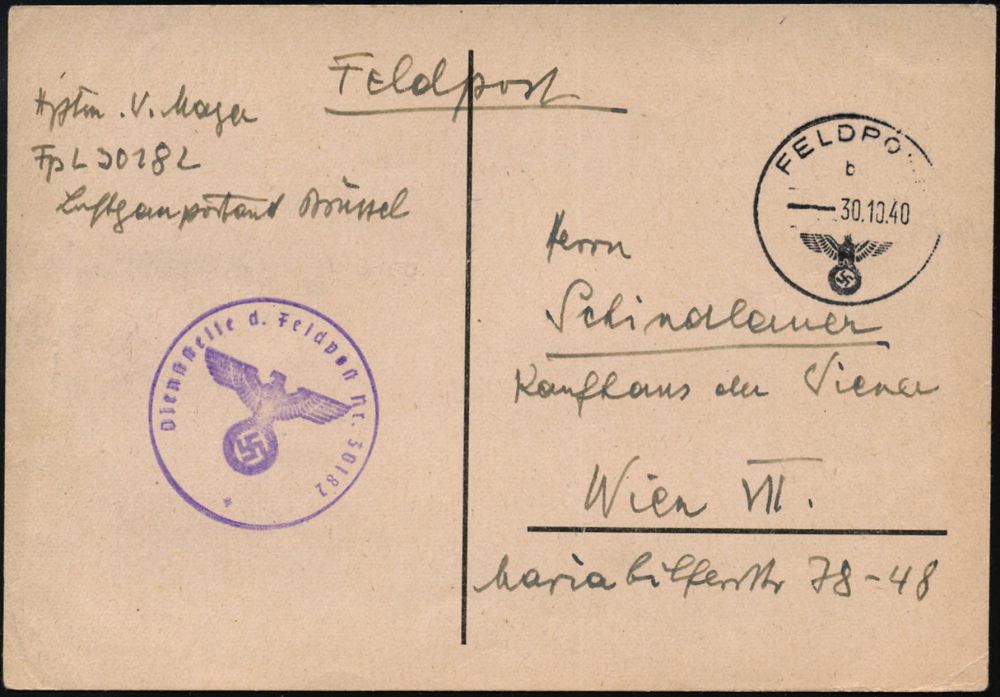 Feldpost
Hptm. V. Mayer
Fp L 30182
Luftgaupostamt Brüssel
FELDPOS
b
30.10.40
Herrn
Schindlauer
Kaufhaus der Wiener
Wien VII.
Mariahilferstr 38-48
Dienststelle d. Feldpost Nr. 30182
*